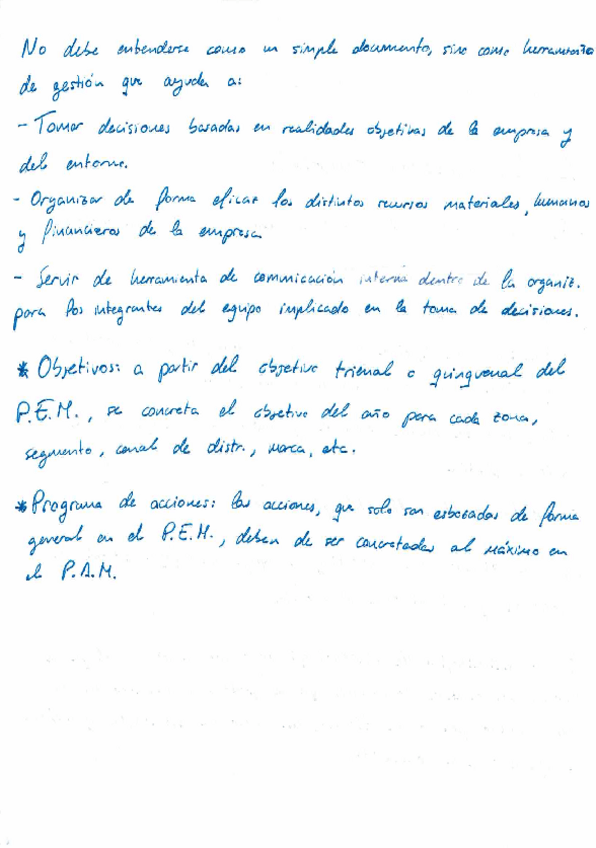 No debe entenderse como un simple documento, sino como herramienta
de gestión que ayuda a:
- Tomar decisiones basadas en realidades objetivas de la empresa y
del entorno.
- Organizar de forma eficaz los distintos recursos materiales, humanos
y financieros de la empresa
- Servir de herramienta de comunicación interna dentro de la organiz.
para los integrantes del equipo implicado en la toma de decisiones.
* Objetivos: a partir del objetivo trienal o quinquenal del
P.E.M., se concreta el objetivo del año para cada zona,
segmento, canal de distr., marca, etc.
* Programa de acciones: las acciones, que solo son esbozadas de forma
general en el P.E.M., deben de ser concretadas al máximo en
el P.A.M.